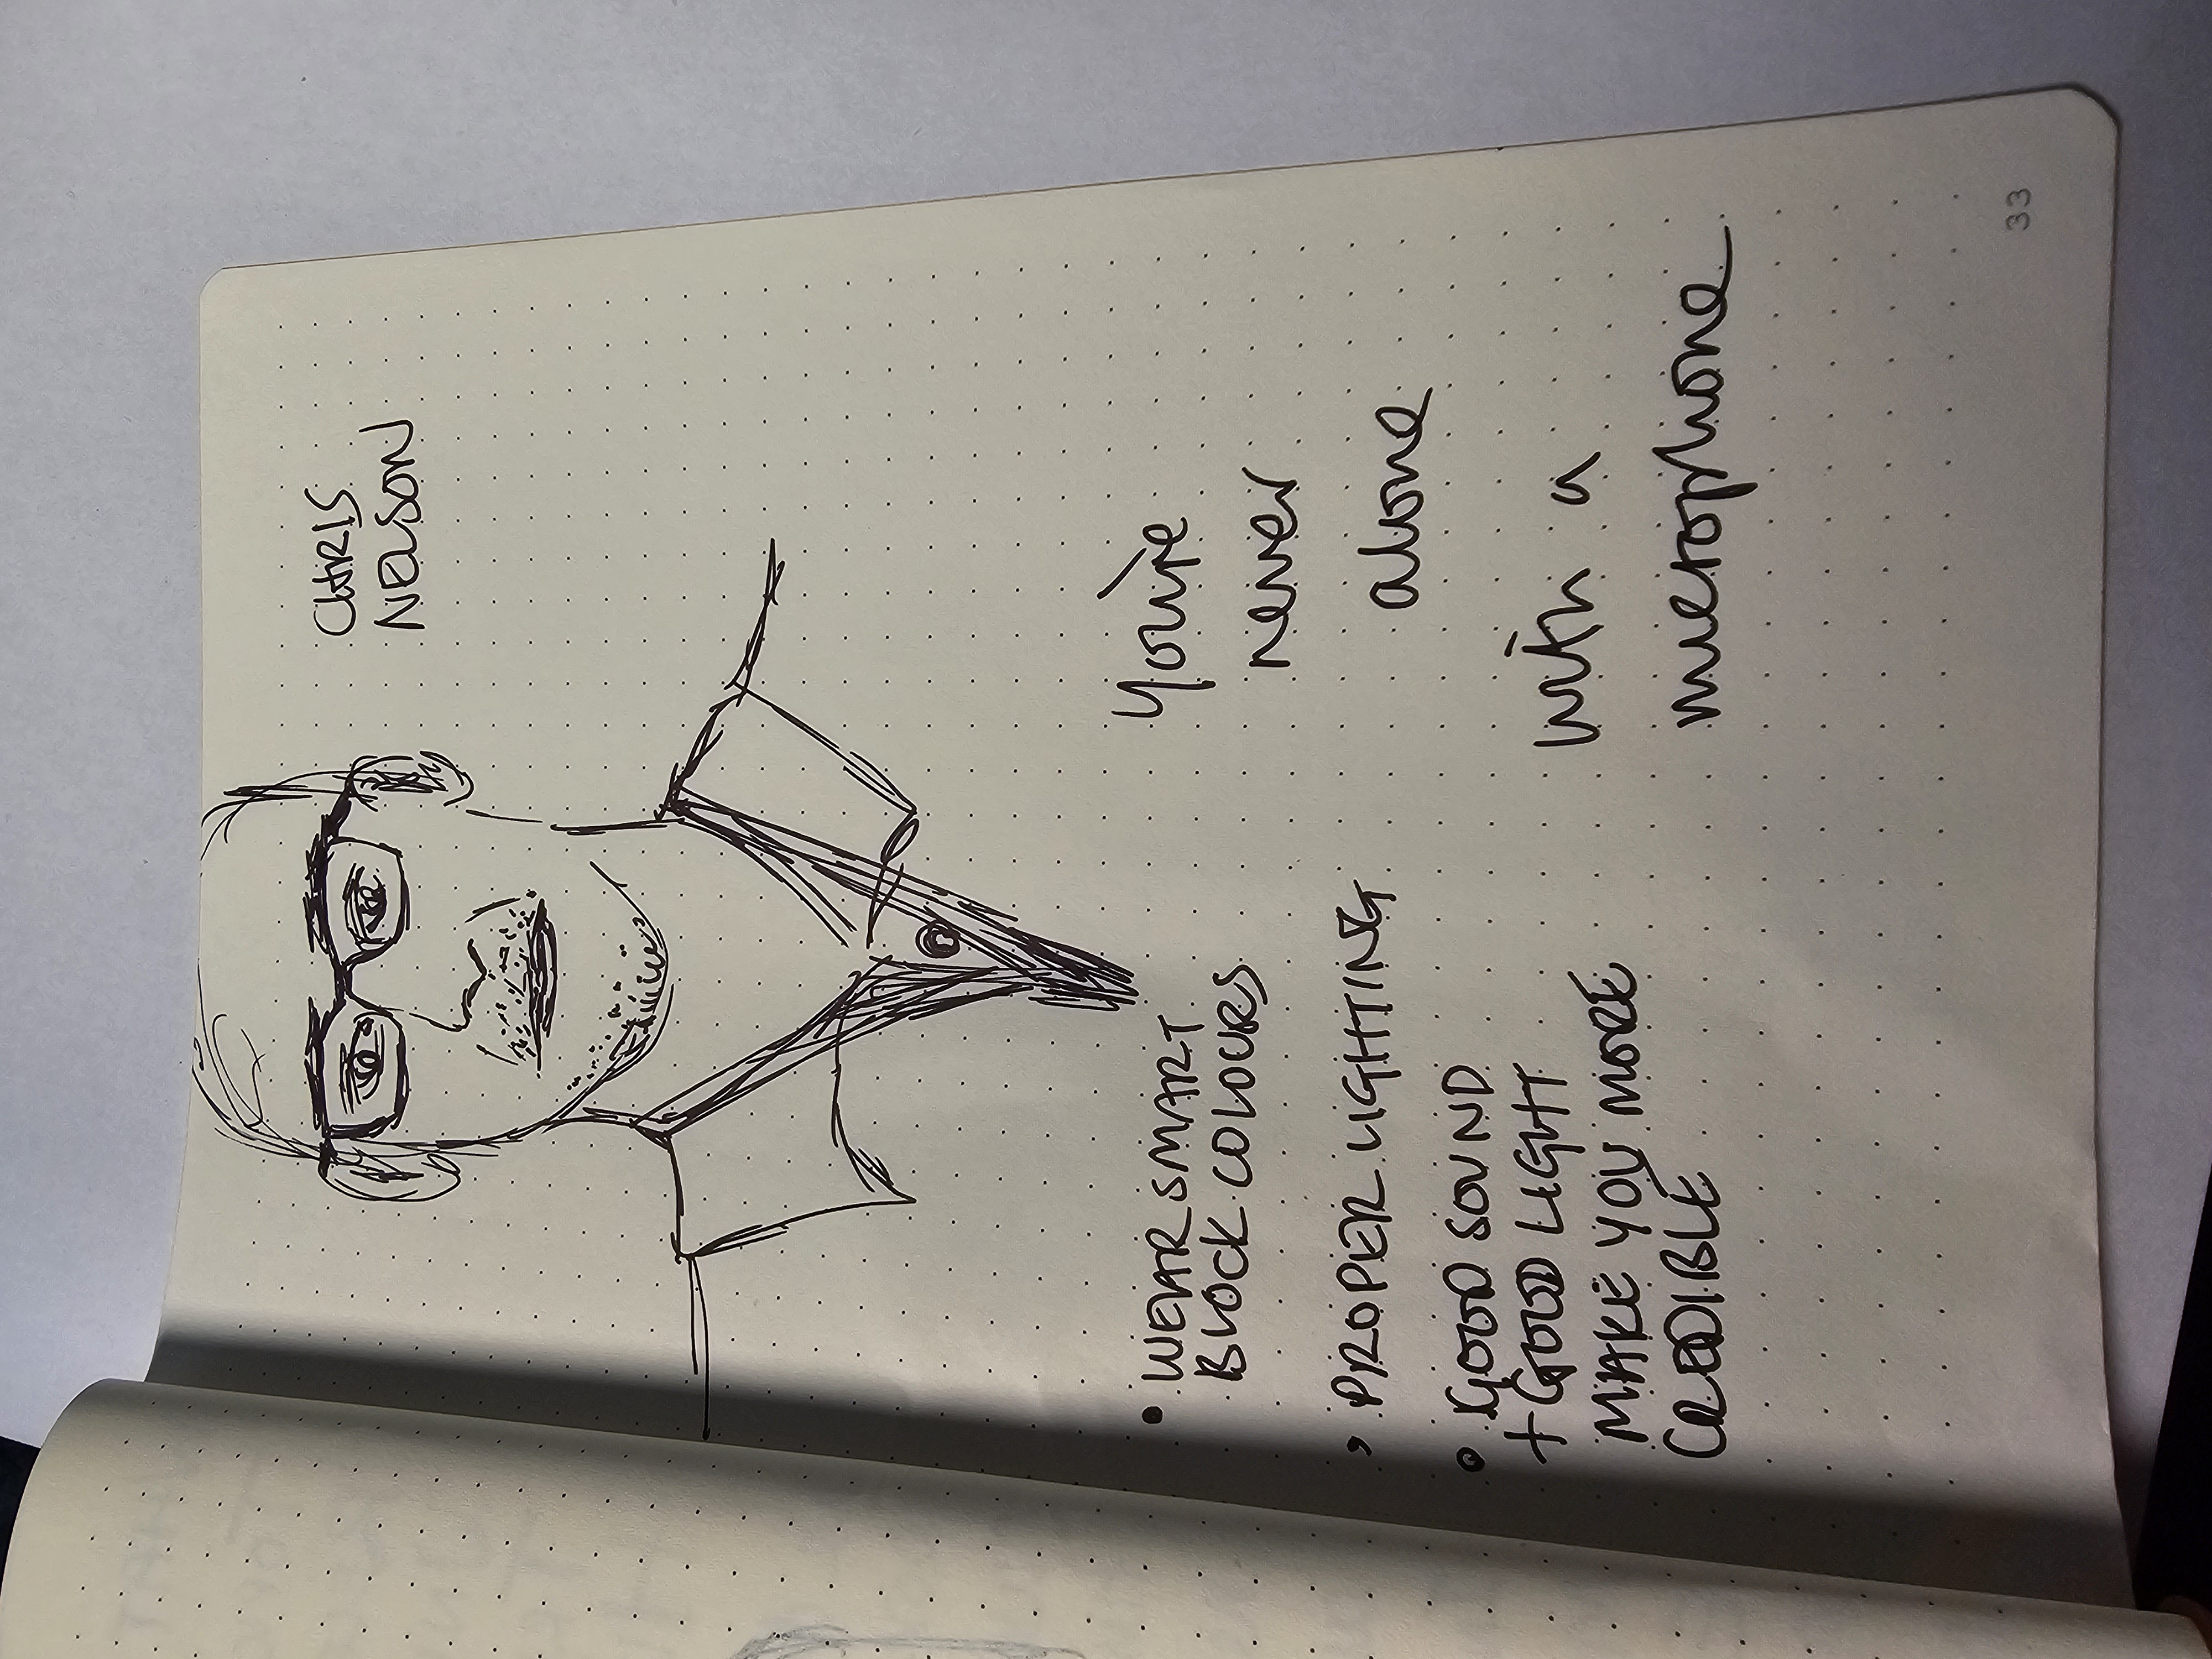 CHRIS
NELSON
• WEAR SMART
BLOCK COLOURS
, PROPER LIGHTING
• GOOD SOUND
+ GOOD LIGHT
MAKE YOU MORE
CREDIBLE
You're
never
alone
with a
microphone
33